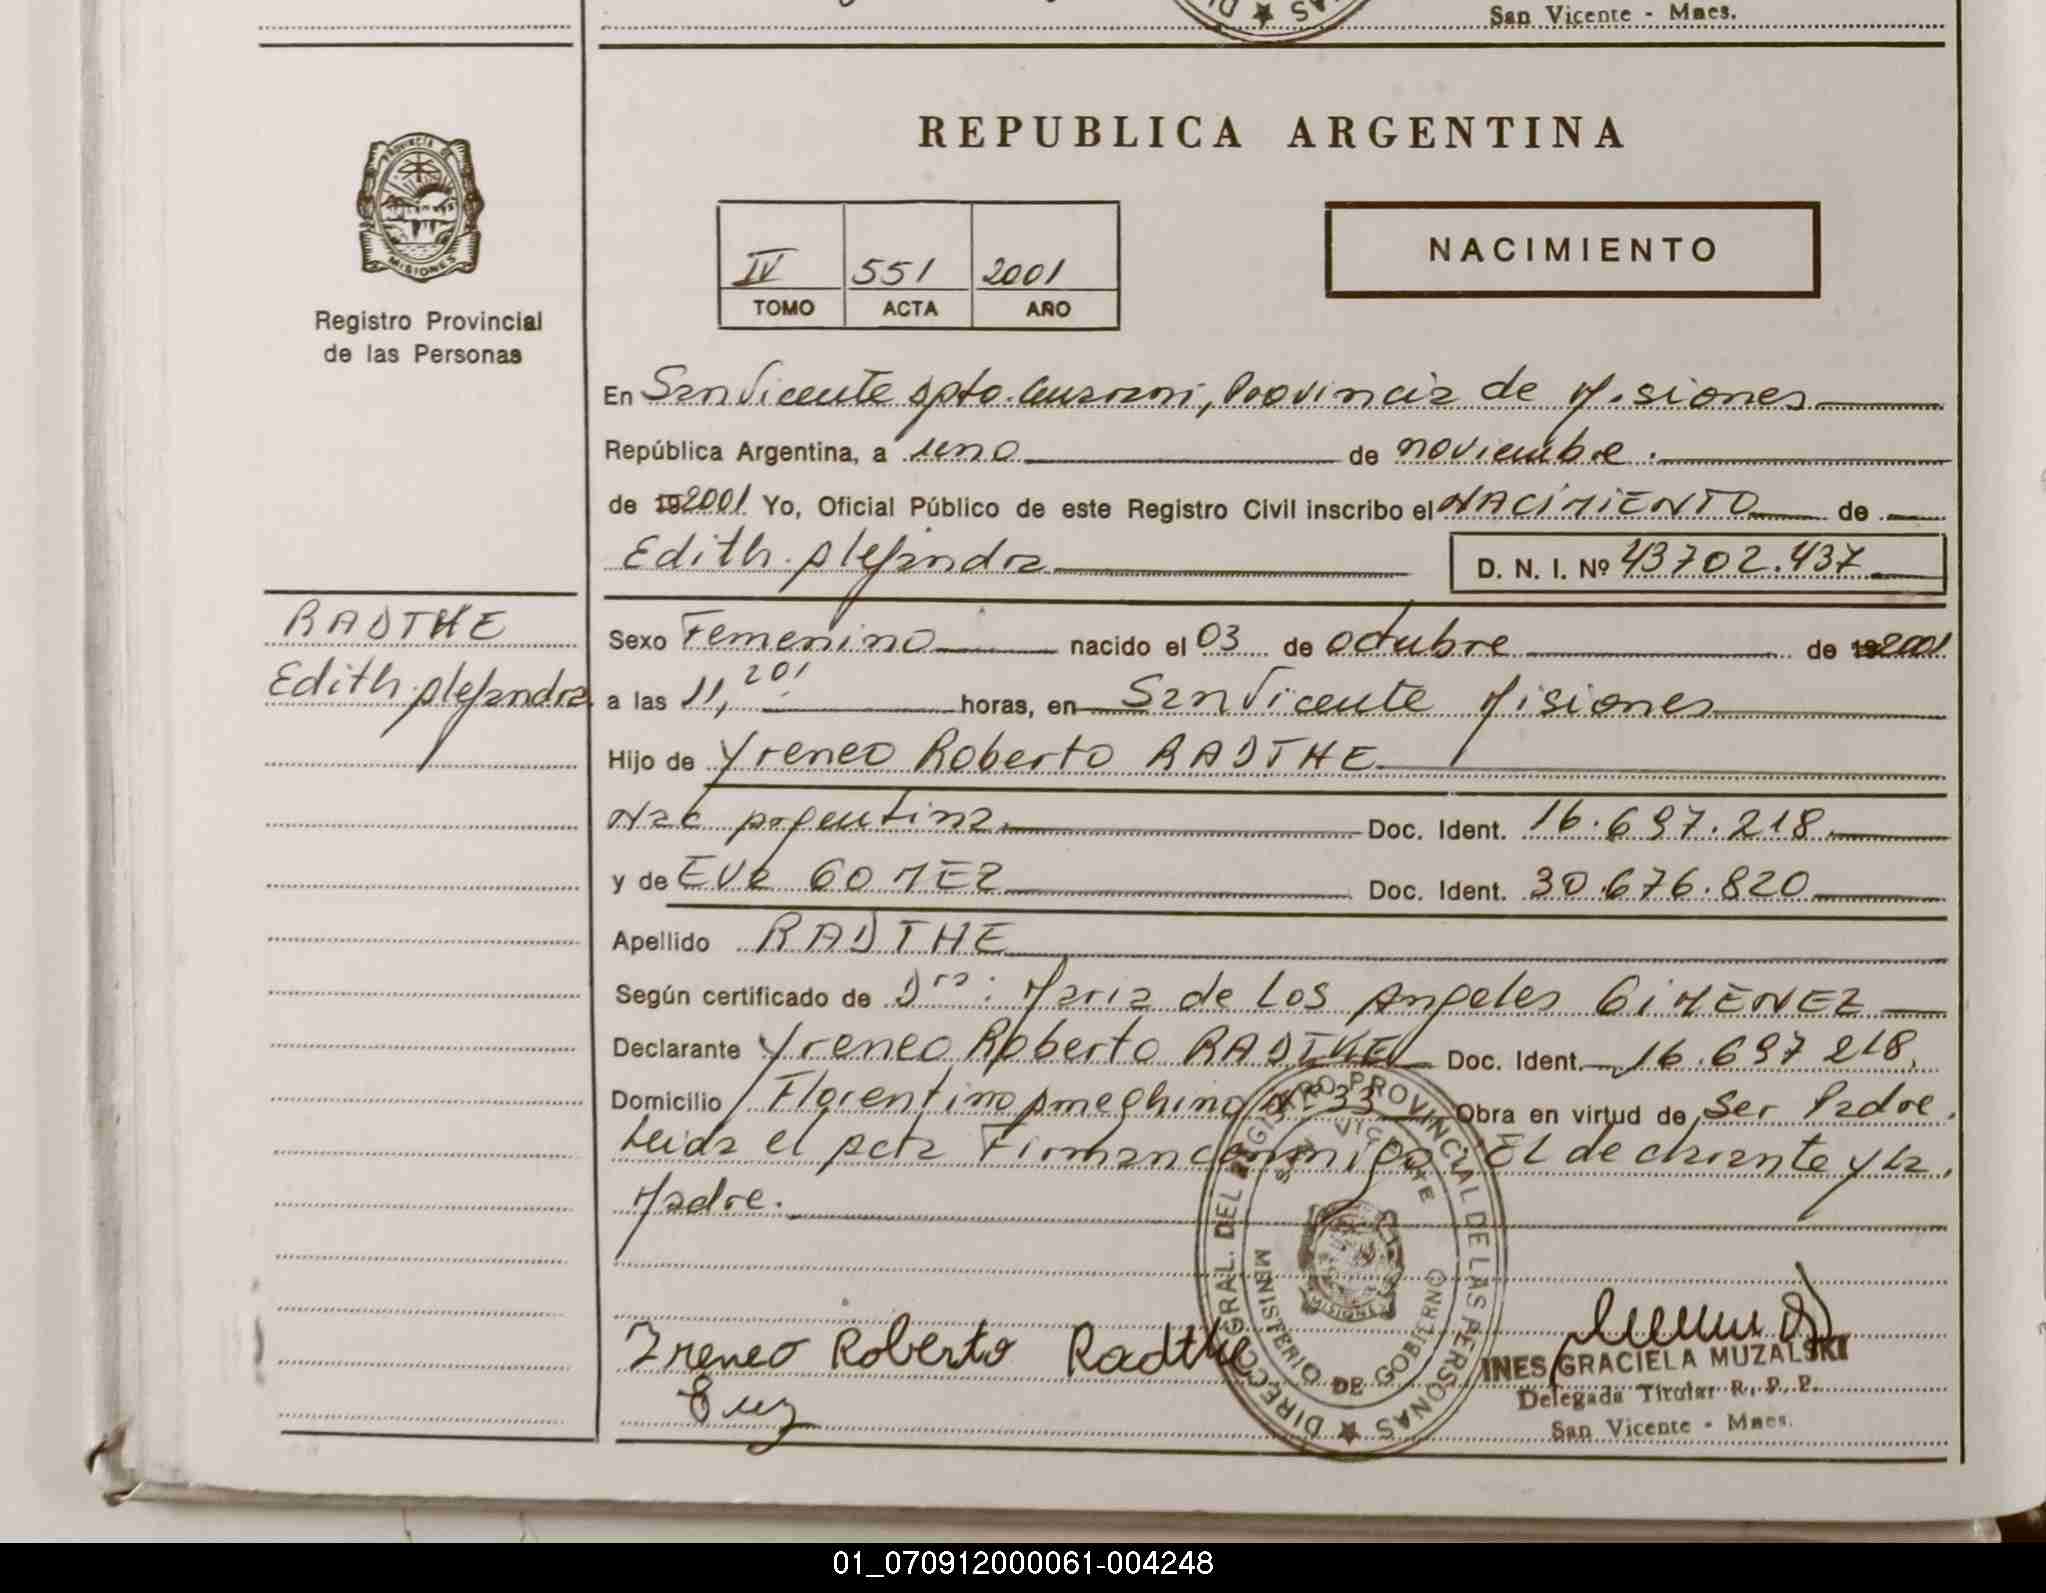 San Vicente - Mnes.
REPUBLICA ARGENTINA
PROVINCIA DE
MISIONES
Registro Provincial
de las Personas
IV 551 2001
TOMO ACTA AÑO
NACIMIENTO
En San Vicente Dpto. Guarani, Provincia de Misiones
República Argentina, a uno de noviembre.
de 19 2001 Yo, Oficial Público de este Registro Civil inscribo el NACIMIENTO de
Edith Alejandra D. N. I. Nº 43702.437
RADTHE
Edith Alejandra
Sexo Femenino nacido el 03 de octubre de 19 2001
a las 11,20 horas, en San Vicente Misiones
Hijo de Yreneo Roberto RADTHE
Nac Argentina Doc. Ident. 16.697.218
y de EVA GOMEZ Doc. Ident. 30.676.820
Apellido RADTHE
Según certificado de Dra: Maria de Los Angeles GIMENEZ
Declarante Yreneo Roberto RADTKE Doc. Ident. 16.697 218.
Domicilio Florentino Ameghino Nº 33 Obra en virtud de Ser Padre.
Leida el Acta Firman conmigo El declarante y La
Madre.
DIRECC. GRAL. DEL REGISTRO PROVINCIAL DE LAS PERSONAS
SAN VICENTE
MINISTERIO DE GOBIERNO
MISIONES
Ireneo Roberto Radthe
INES GRACIELA MUZALSKI
Delegada Titular R. P. P.
San Vicente - Mnes.
01_070912000061-004248